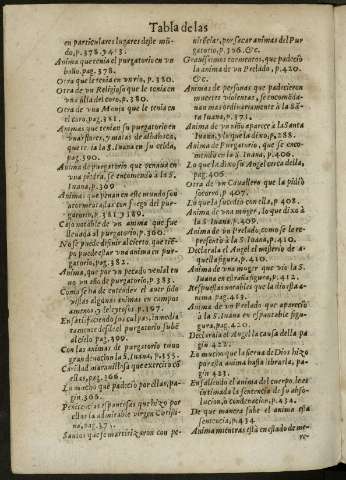 Tabla de las
en particulares lugares deste mũ-
do, p. 378. y 413.
Anima que tenia el purgatorio en vn
baño. pag. 378.
Otra q̃ le tenia en vn rio, p. 380.
Otra de vn Religioso que le tenia en
vna silla del coro, p. 380.
Otra de vna Monja que le tenia en
el coro, pag. 381.
Animas que tenian su purgatorio en
vnas flores, y matas de albahaca,
que tenia la S. Iuana en su celda,
pag. 390.
Anima de Purgatorio que penaua en
vna piedra, se encomendò a la S.
Iuana, p. 369
Animas que penan en este mundo son
atormentadas con fuego del pur-
gatorio, p. 381. y 389.
Caso notable de vn anima que fue
lleuada al purgatorio, p. 360.
No se puede definir al cierto, que tiẽ-
po puede estar vna anima en pur-
gatorio, pag. 382.
Anima, que por vn pecado venial tu
uo vn año de purgatorio, p. 383.
Como se ha de entender el auer sido
vistas algunas animas en campos
amenos, y deleytosos, p. 397.
En satisfaciendo sus culpas, inmedia
tamente desde el purgatorio subẽ
al cielo, pag. 399.
Con las animas de purgatorio tuuo
gran deuocion la S. Iuana, p. 355.
Caridad marauillosa que exercitò cõ
ellas, pag. 366.
Lo mucho que padeciò por ellas, pa-
gin. 366.
Penitencias espantosas que hizo por
ellas la admirable virgen Cristi-
na, pag. 37
Santos que se martirizaron con pe-
nitencias, por sacar animas del Pur
gatorio, p. 396. &c.
Grauissimos tormentos, que padeciò
la anima de vn Prelado, p. 420.
&c.
Animas de personas que padecieron
muerte violentas, se encomẽda-
uan mas ordinariamente a la Sã-
ta Iuana, p. 371.
Anima de vn niño aparece a la Santa
Iuana, y lo que la dixo, p. 288.
Anima de Purgatorio, que se enco-
mendò en la S. Iuana, p. 406.
Lo q̃ la dixo su Angel cerca della,
pag. 406.
Otra de vn Cauallero que la pidiò
socorro, p. 407.
Lo q̃ la sucediò con ella, p. 408.
Anima de vna muger, lo que dixo a
la S. Iuana, p. 409.
Anima de vn Prelado, como se le re-
presentò a la S. Iuana, p. 410.
Declarala el Angel el misterio de a-
quella figura, p. 410.
Anima de vna muger que vio la S.
Iuana en estraña figura, p. 412.
Respuestas notables que la dio esta a-
nima pag. 413.
Anima de vn Prelado que apareciò
a la S. Iuana en espantable figu-
ra, pag. 420.
Declarala el Angel la causa della pa
gin 422.
Lo mucho que la sierua de Dios hizo
por esta anima hasta librarla, pa-
gin 423.
En saliendo el anima del cuerpo, le es
intimada la sentencia de su abso-
lucion, o condenacion, p. 434.
De que manera sabe el anima esta
sentencia, p. 434
Anima mientras està en estado de me-
re-